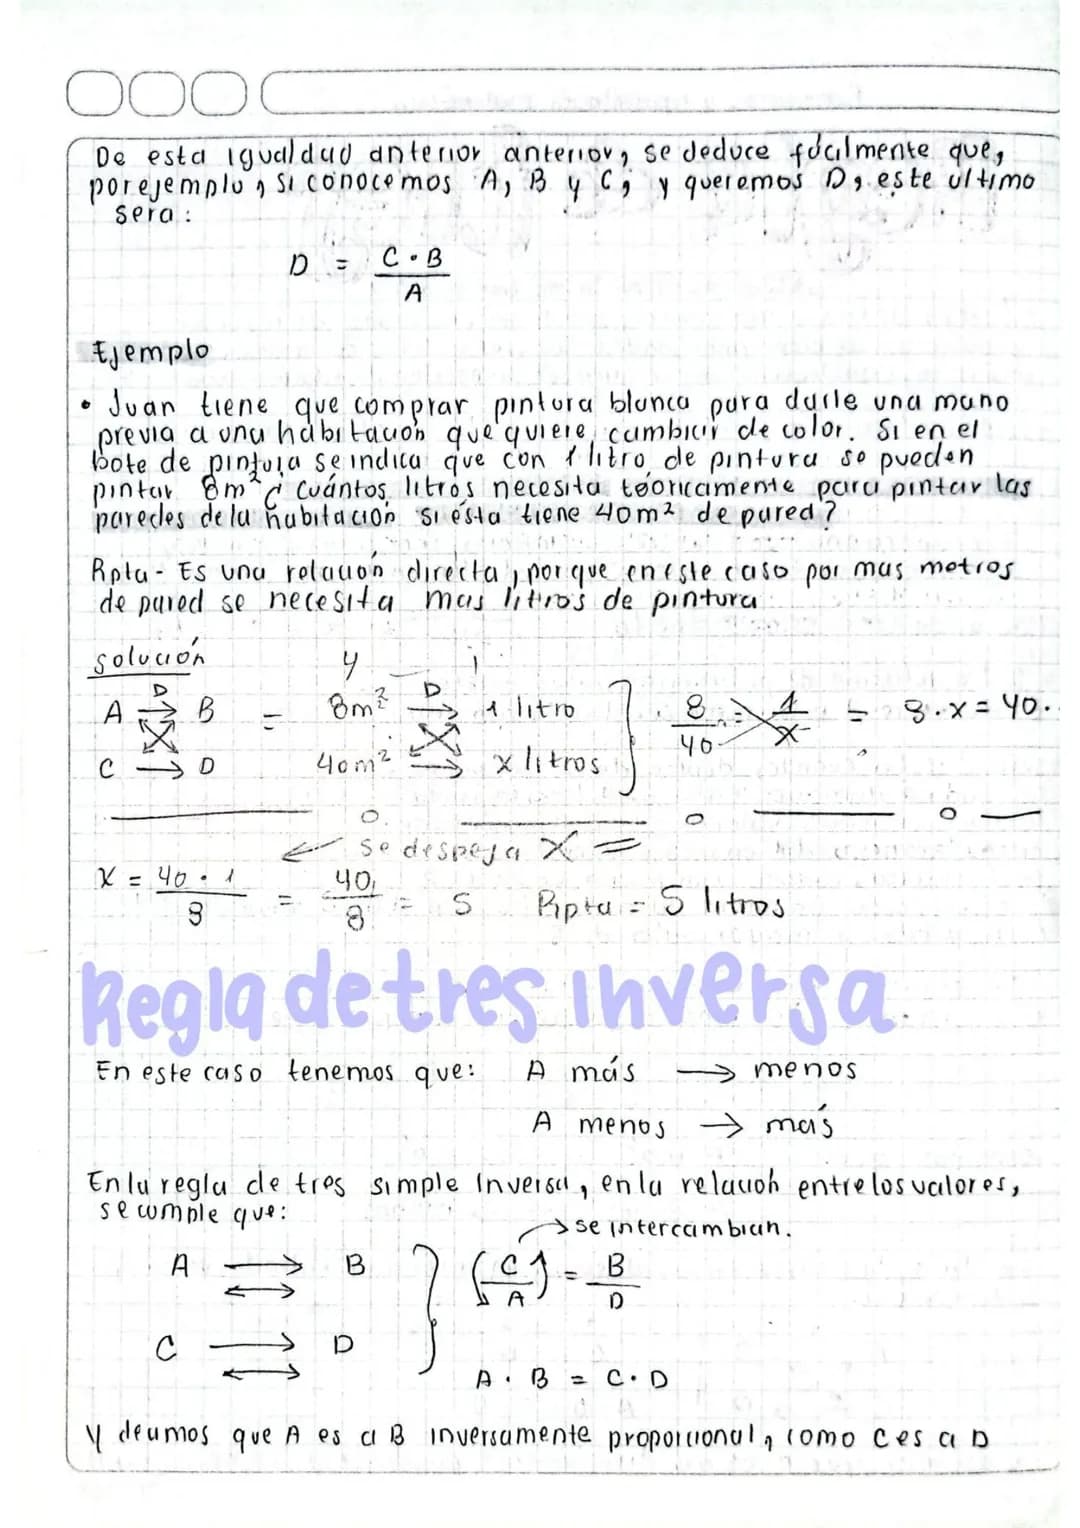 De esta igualdad anterior anterior, se deduce fácilmente que,
por ejemplo, si conocemos A, B y C, y queremos D, este ultimo
sera:
D = C · B
A
Ejemplo
• Juan tiene que comprar pintura blanca para darle una mano
previa a una habitación que quiere cambiar de color. Si en el
bote de pintura se indica que con 1 litro de pintura se pueden
pintar 8m² ¿ Cuántos litros necesita teóricamente para pintar las
paredes de la habitación si ésta tiene 40m² de pared?
Rpta - Es una relación directa, porque en este caso por mas metros
de pared se necesita mas litros de pintura
solución y
A D B = 8m² D 1 litro } 8 = 1 = 8.x = 40.
C → D 40m² → x litros 40 x
← se despeja X =
X = 40 · 1 = 40 = 5 Rpta = 5 litros
8 8
Regla de tres inversa.
En este caso tenemos que: A más → menos
A menos → más
En la regla de tres simple Inversa, en la relación entre los valores,
se cumple que:
→ se intercambian.
A → B } (C) = B
↔ A D
C → D
↔
A · B = C · D
Y decimos que A es a B inversamente proporcional, como C es a D